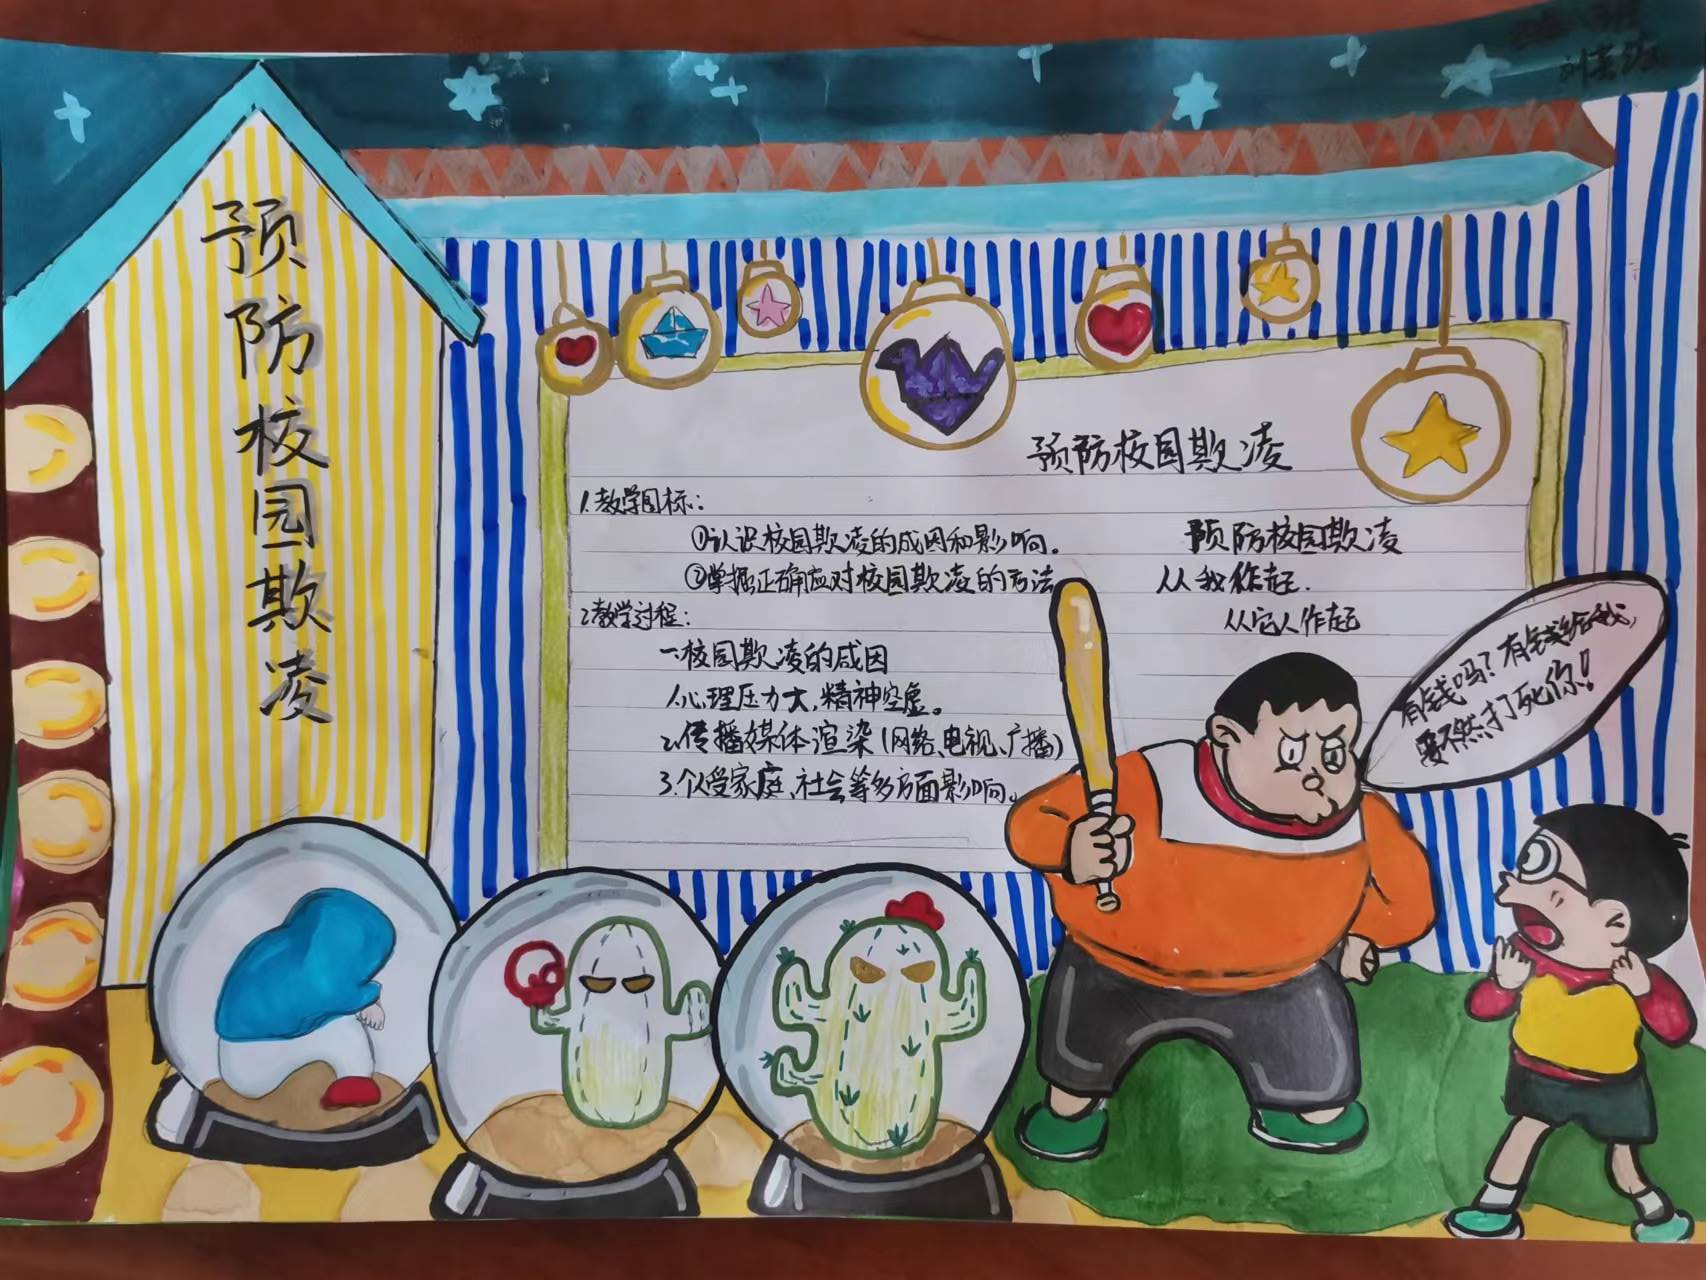 预防校园欺凌
预防校园欺凌
1.教学目标:
①认识校园欺凌的成因和影响。
②掌握正确应对校园欺凌的方法
2.教学过程:
一.校园欺凌的成因
1.心理压力大,精神空虚。
2.传播媒体渲染(网络、电视、广播)
3.个人受家庭、社会等多方面影响。
预防校园欺凌
从我作起.
作起
有钱吗?有钱给我,
要不然打死你!